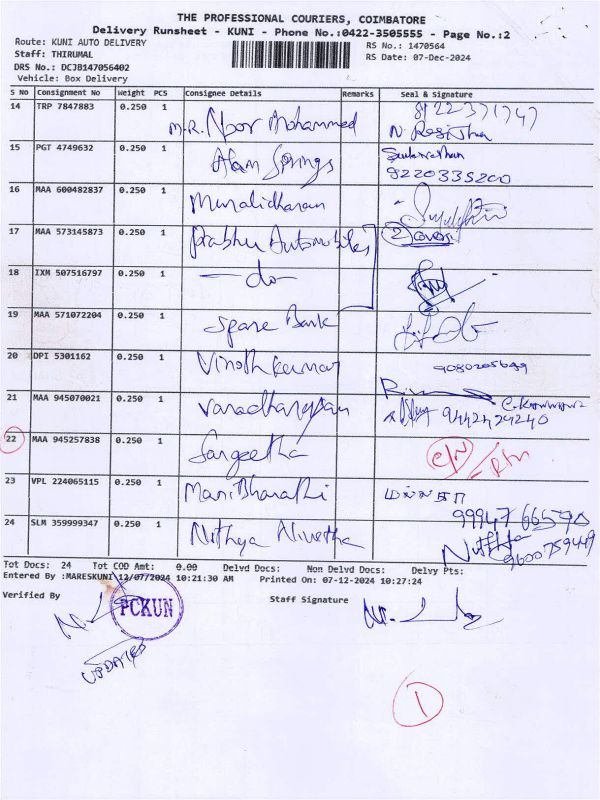 THE PROFESSIONAL COURIERS, COIMBATORE
Delivery Runsheet - KUNI - Phone No.:0422-3505555 - Page No.:2
Route: KUNI AUTO DELIVERY
RS No.: 1470564
Staff: THIRUMAL
RS Date: 07-Dec-2024
DRS No.: DCJB147056402
Vehicle: Box Delivery
S No Consignment No Weight PCS Consignee Details Remarks Seal & Signature
14 TRP 7847883 0.250 1 M.R. Noor Mohammed
15 PGT 4749632 0.250 1 Alam Springs 9220335200
16 MAA 600482837 0.250 1 Muralidharan
17 MAA 573145873 0.250 1 Prabhu Automobiles 2 covers
18 IXM 507516797 0.250 1 -do-
19 MAA 571072204 0.250 1 Spare Bank
20 DPI 5301162 0.250 1 Vinothkumar
21 MAA 945070021 0.250 1 Varadharajan
22 MAA 945257838 0.250 1 Sangeetha
23 VPL 224065115 0.250 1 ManiBharathi 99947 66570
24 SLM 359999347 0.250 1 Nithya Nivetha 9600759449
Tot Docs: 24 Tot COD Amt: 0.00 Delvd Docs: Non Delvd Docs: Delvy Pts:
Entered By :MARESKUNI 12/07/2024 10:21:30 AM Printed On: 07-12-2024 10:27:24
Verified By PCKUN Staff Signature
UPDATED
1